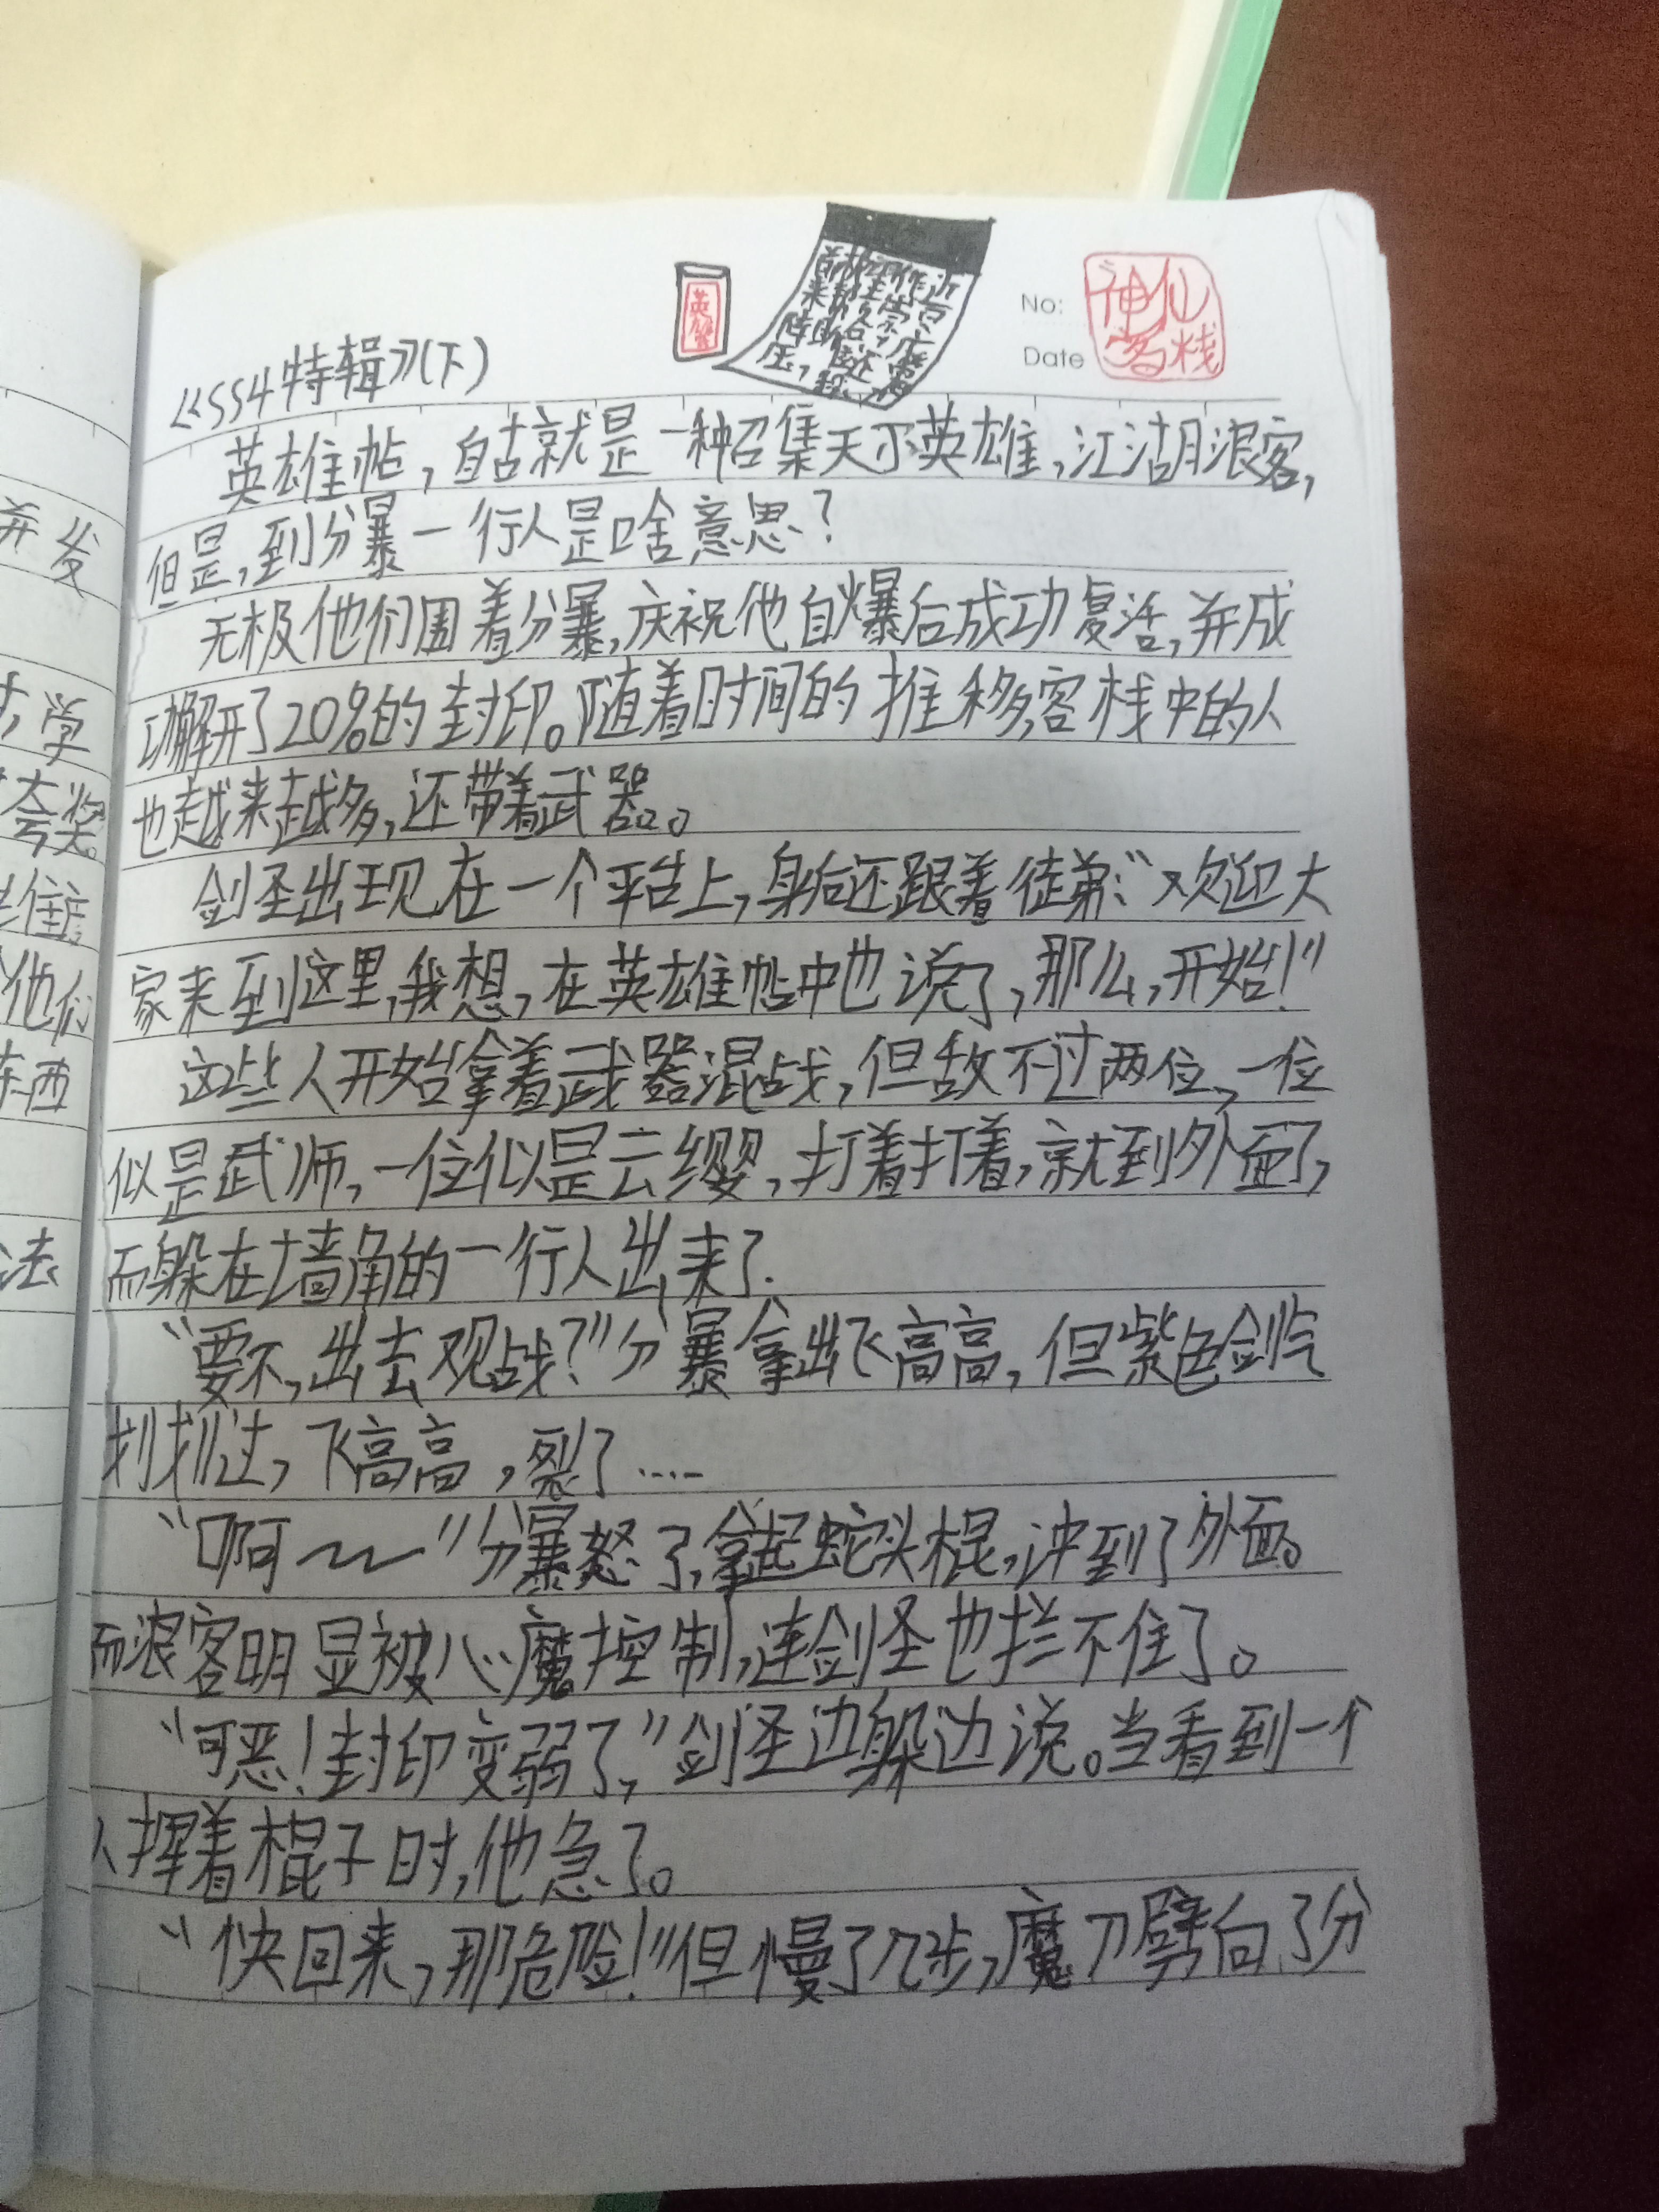 神仙
客栈
No:
Date
英雄
《SS4特辑》(下)
英雄帖,自古就是一种召集天下英雄,江湖浪客,
但是,到分暴一行人是啥意思?
无极他们围着分暴,庆祝他自爆后成功复活,并成
功解开了20%的封印。随着时间的推移,客栈中的人
也越来越多,还带着武器。
剑圣出现在一个平台上,身后还跟着徒弟:“欢迎大
家来到这里,我想,在英雄帖中也说了,那么,开始!”
这些人开始拿着武器混战,但敌不过两位,一位
似是武师,一位似是云缨,打着打着,就到外面了,
而躲在墙角的一行人出来了.
“要不,出去观战?”分暴拿出飞高高,但紫色剑气
划过,飞高高,裂了……
“啊~~”分暴怒了,拿起蛇头棍,冲到了外面。
而浪客明显被心魔控制,连剑圣也拦不住了。
“可恶!封印变弱了,”剑圣边躲边说。当看到一个
人挥着棍子时,他急了。
“快回来,那危险!”但慢了几步,魔刀劈向了分
并发
学
夸奖。
住
他们
东西
法